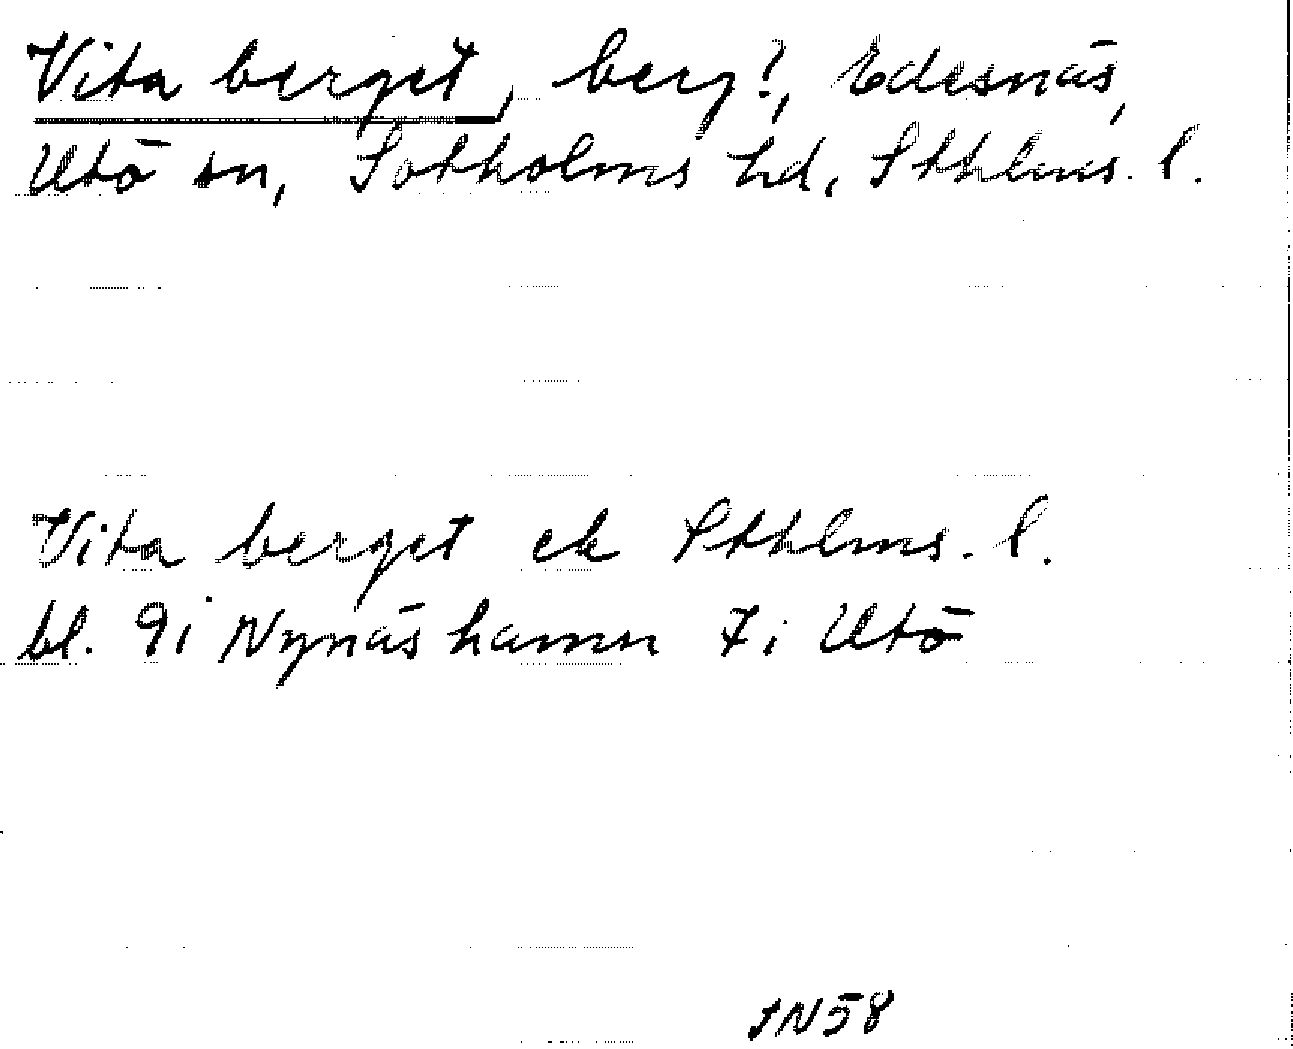 Vita berget, berg?, Edesnäs,
Utö sn, Sotholms hd, Sthlms. l.
Vita berget ek Sthlms. l.
bl. 9i Nynäshamn 7i Utö
JN58